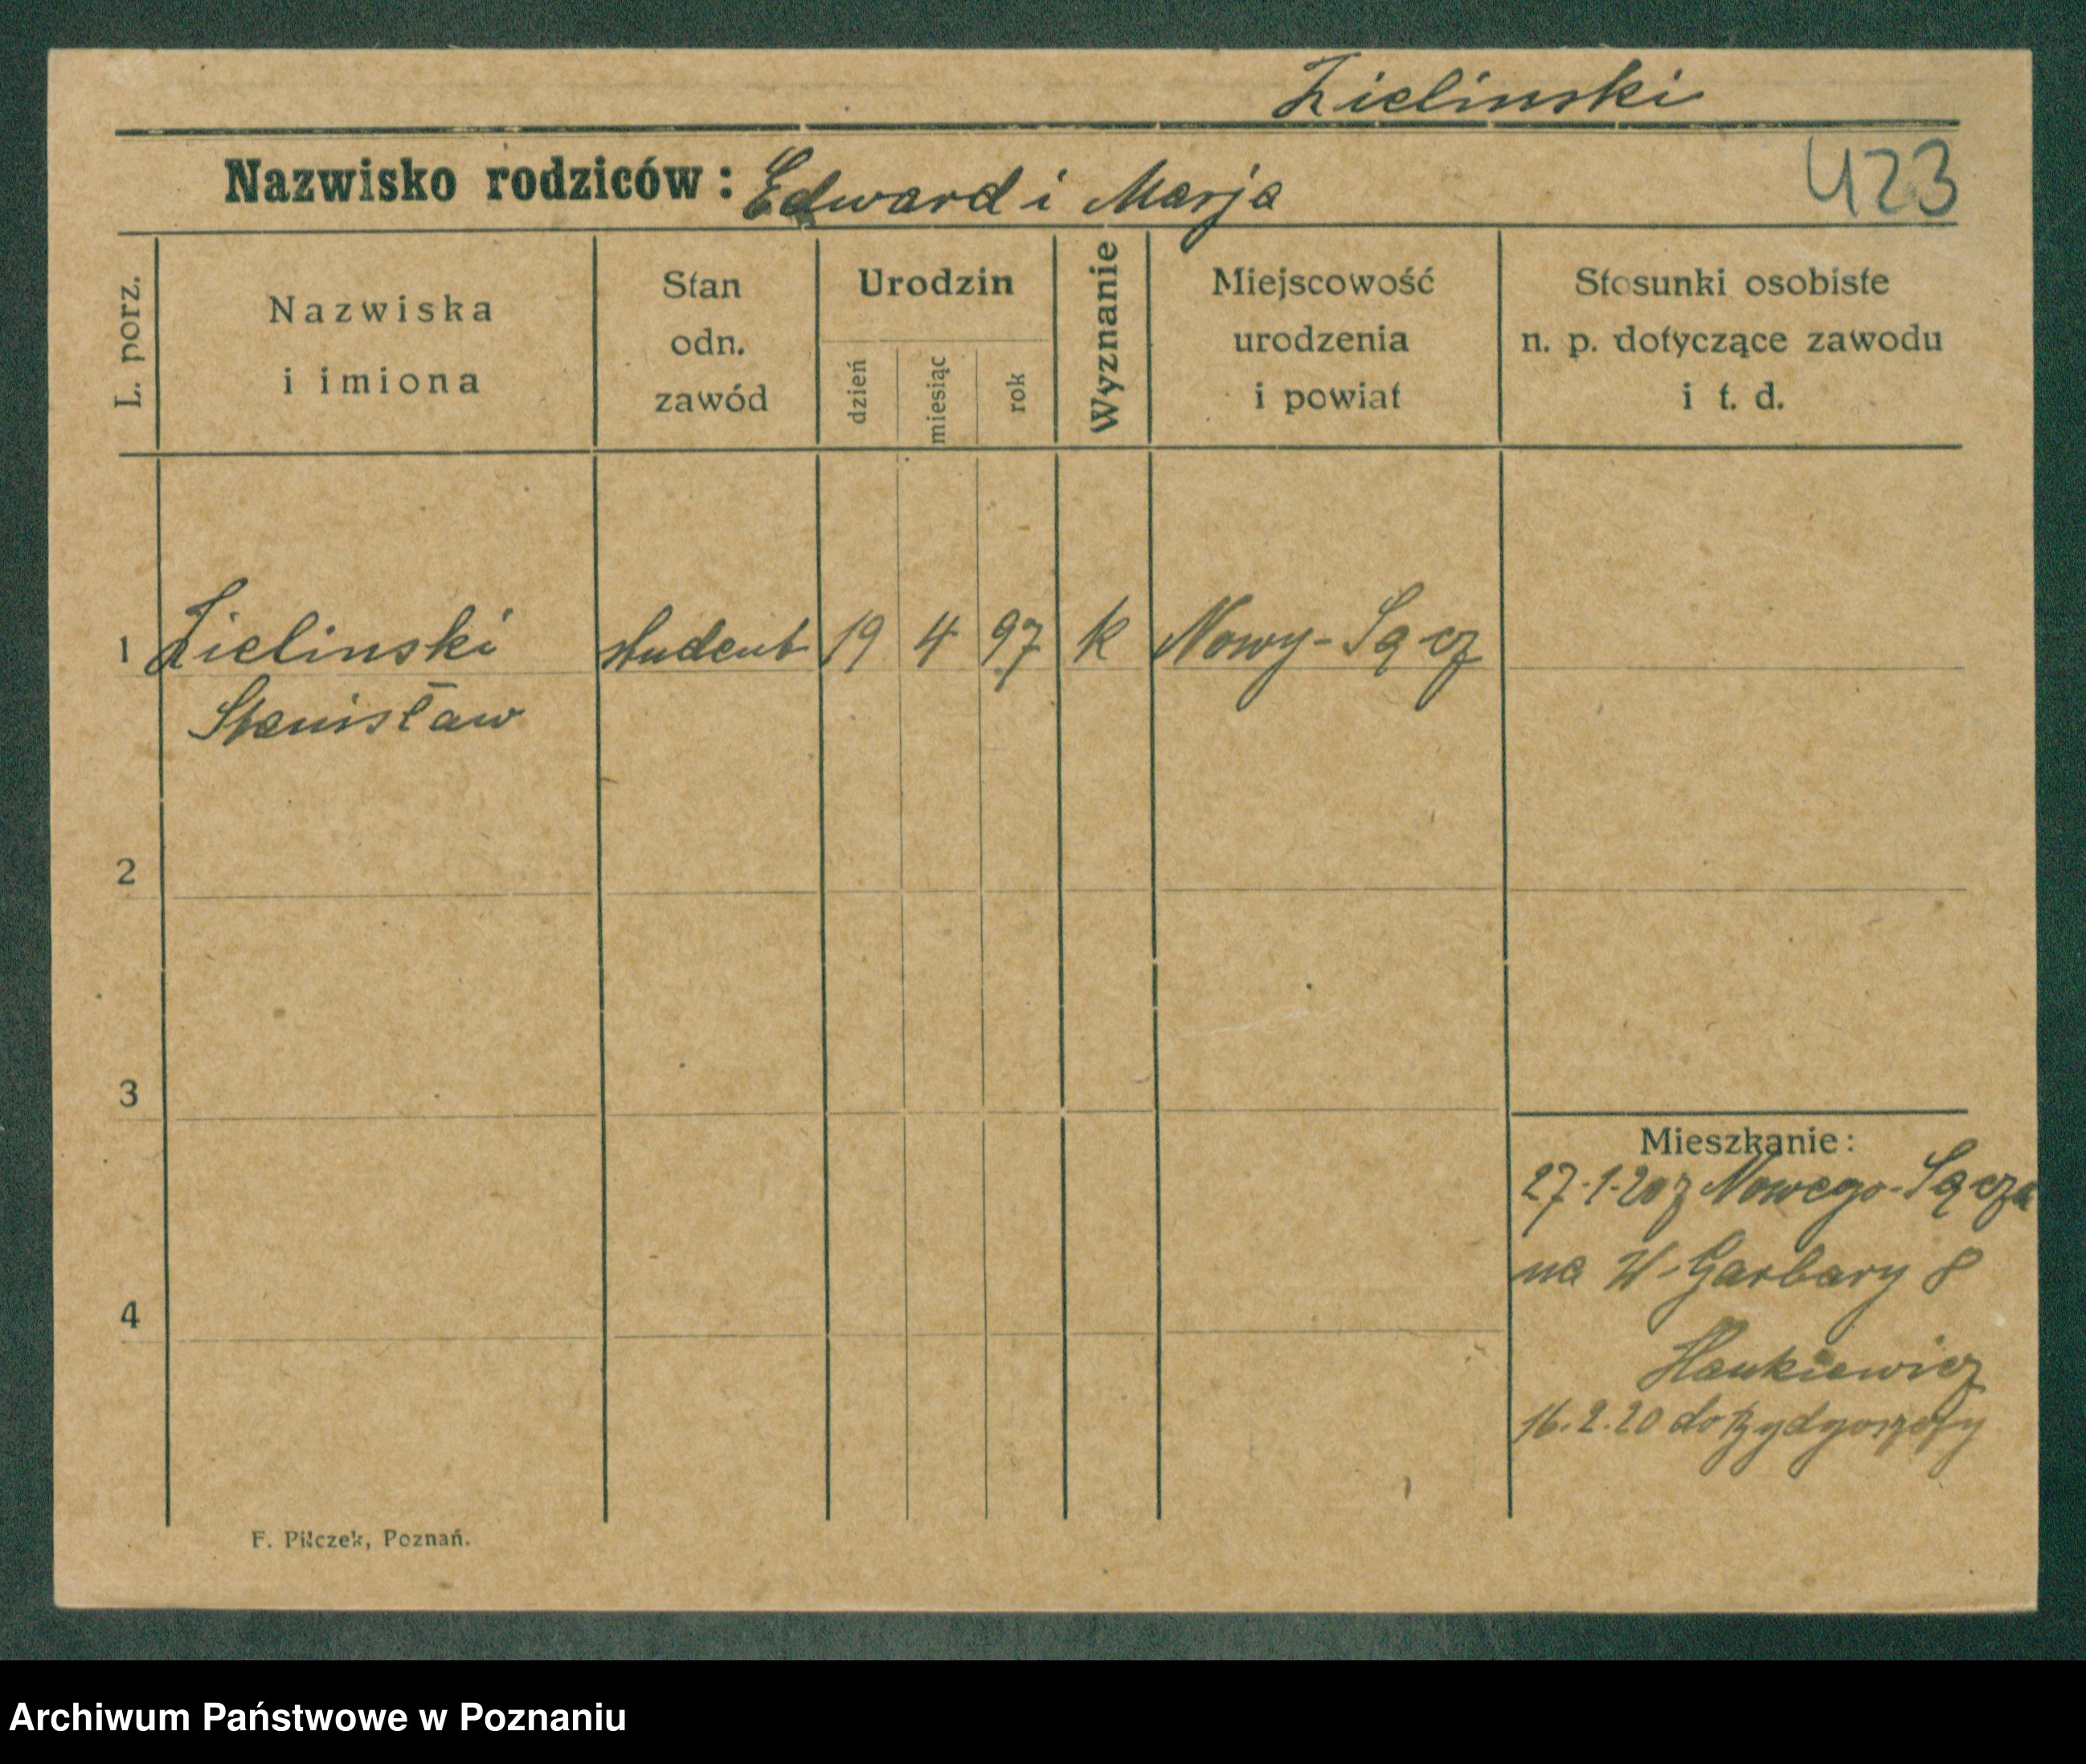 Zielinski
Nazwisko rodziców: Edward i Marja
423
L. porz.
Nazwiska
i imiona
Stan
odn.
zawód
Urodzin
dzień
miesiąc
rok
Wyznanie
Miejscowość
urodzenia
i powiat
Stosunki osobiste
n. p. dotyczące zawodu
i t. d.
1 Zielinski student 19 4 97 k Nowy-Sącz
Stanisław
2
3
4
Mieszkanie:
27.1.20 z Nowego-Sącza
na W-Garbary 8
Hankiewicz
16.2.20 do Bydgoszczy
F. Pilczek, Poznań.
Archiwum Państwowe w Poznaniu